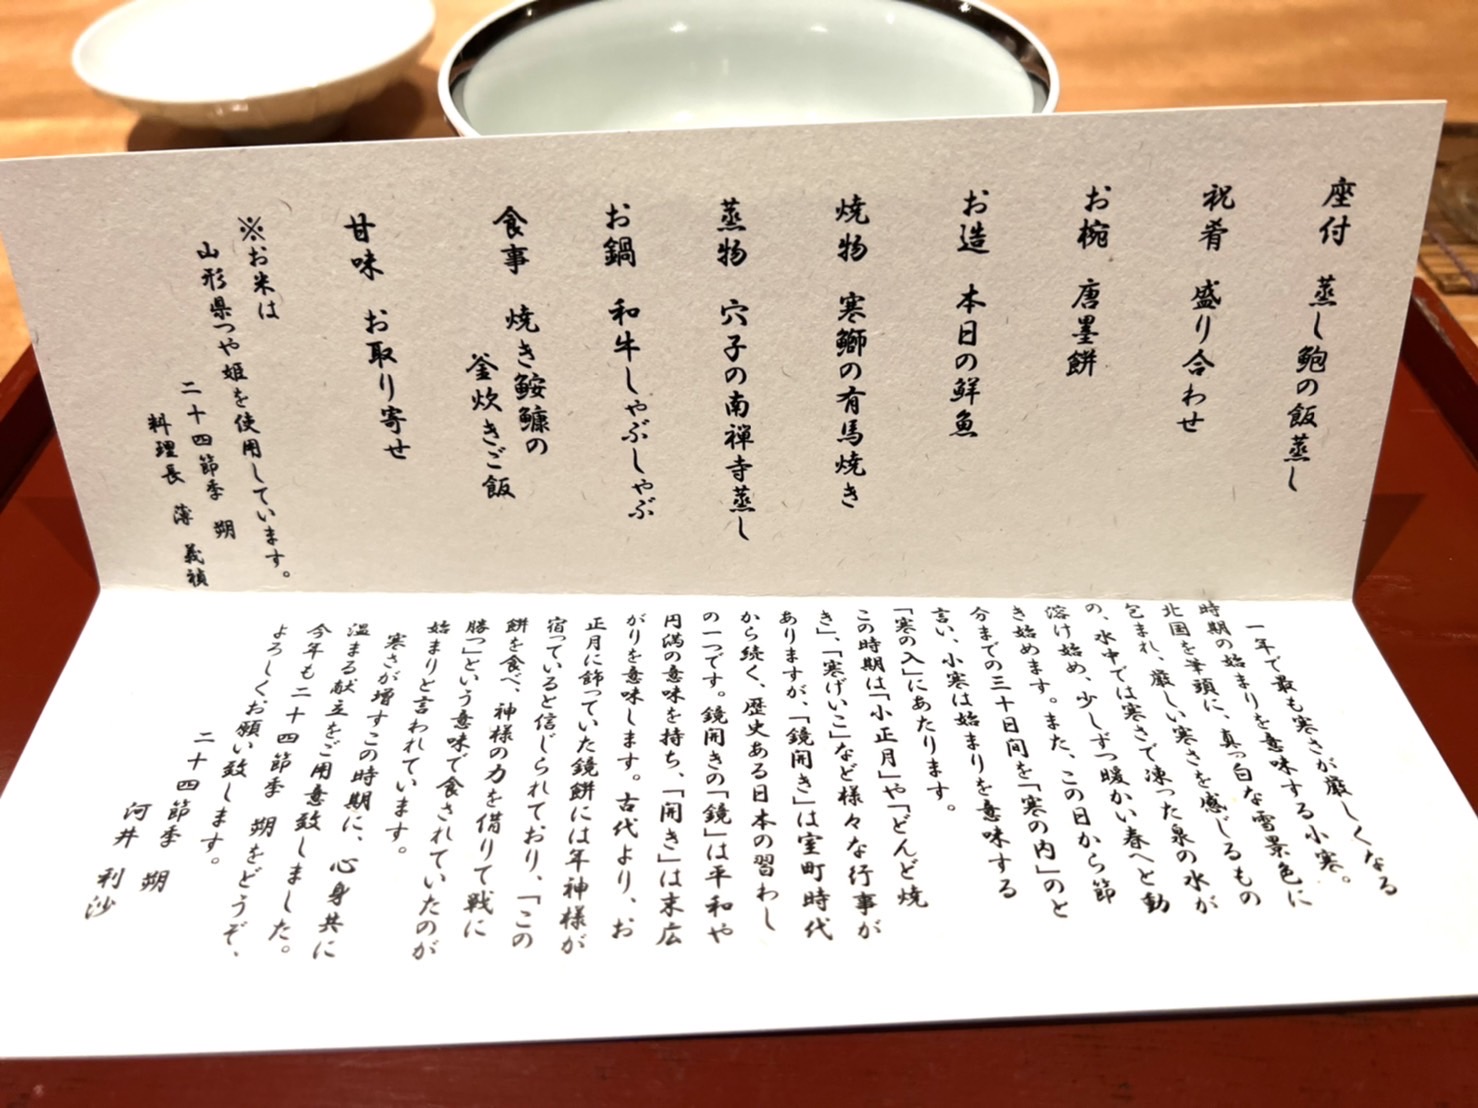 座付 蒸し鮑の飯蒸し
祝肴 盛り合わせ
お椀 唐墨餅
お造 本日の鮮魚
焼物 寒鰤の有馬焼き
蒸物 穴子の南禅寺蒸し
お鍋 和牛しゃぶしゃぶ
食事 焼き鮟鱇の
釜炊きご飯
甘味 お取り寄せ
※お米は
山形県つや姫を使用しています。
二十四節季 朔
料理長 薄 義禎
一年で最も寒さが厳しくなる
時期の始まりを意味する小寒。
北国を筆頭に、真っ白な雪景色に
包まれ、厳しい寒さを感じるもの
の、水中では寒さで凍った泉の水が
溶け始め、少しずつ暖かい春へと動
き始めます。また、この日から節
分までの三十日間を「寒の内」のと
言い、小寒は始まりを意味する
「寒の入」にあたります。
この時期は「小正月」や「どんど焼
き」、「寒げいこ」など様々な行事が
ありますが、「鏡開き」は室町時代
から続く、歴史ある日本の習わし
の一つです。鏡開きの「鏡」は平和や
円満の意味を持ち、「開き」は末広
がりを意味します。古代より、お
正月に飾っていた鏡餅には年神様が
宿っていると信じられており、「この
餅を食べ、神様の力を借りて戦に
勝つ」という意味で食されていたのが
始まりと言われています。
寒さが増すこの時期に、心身共に
温まる献立をご用意致しました。
今年も二十四節季 朔をどうぞ、
よろしくお願い致します。
二十四節季 朔
河井 利沙